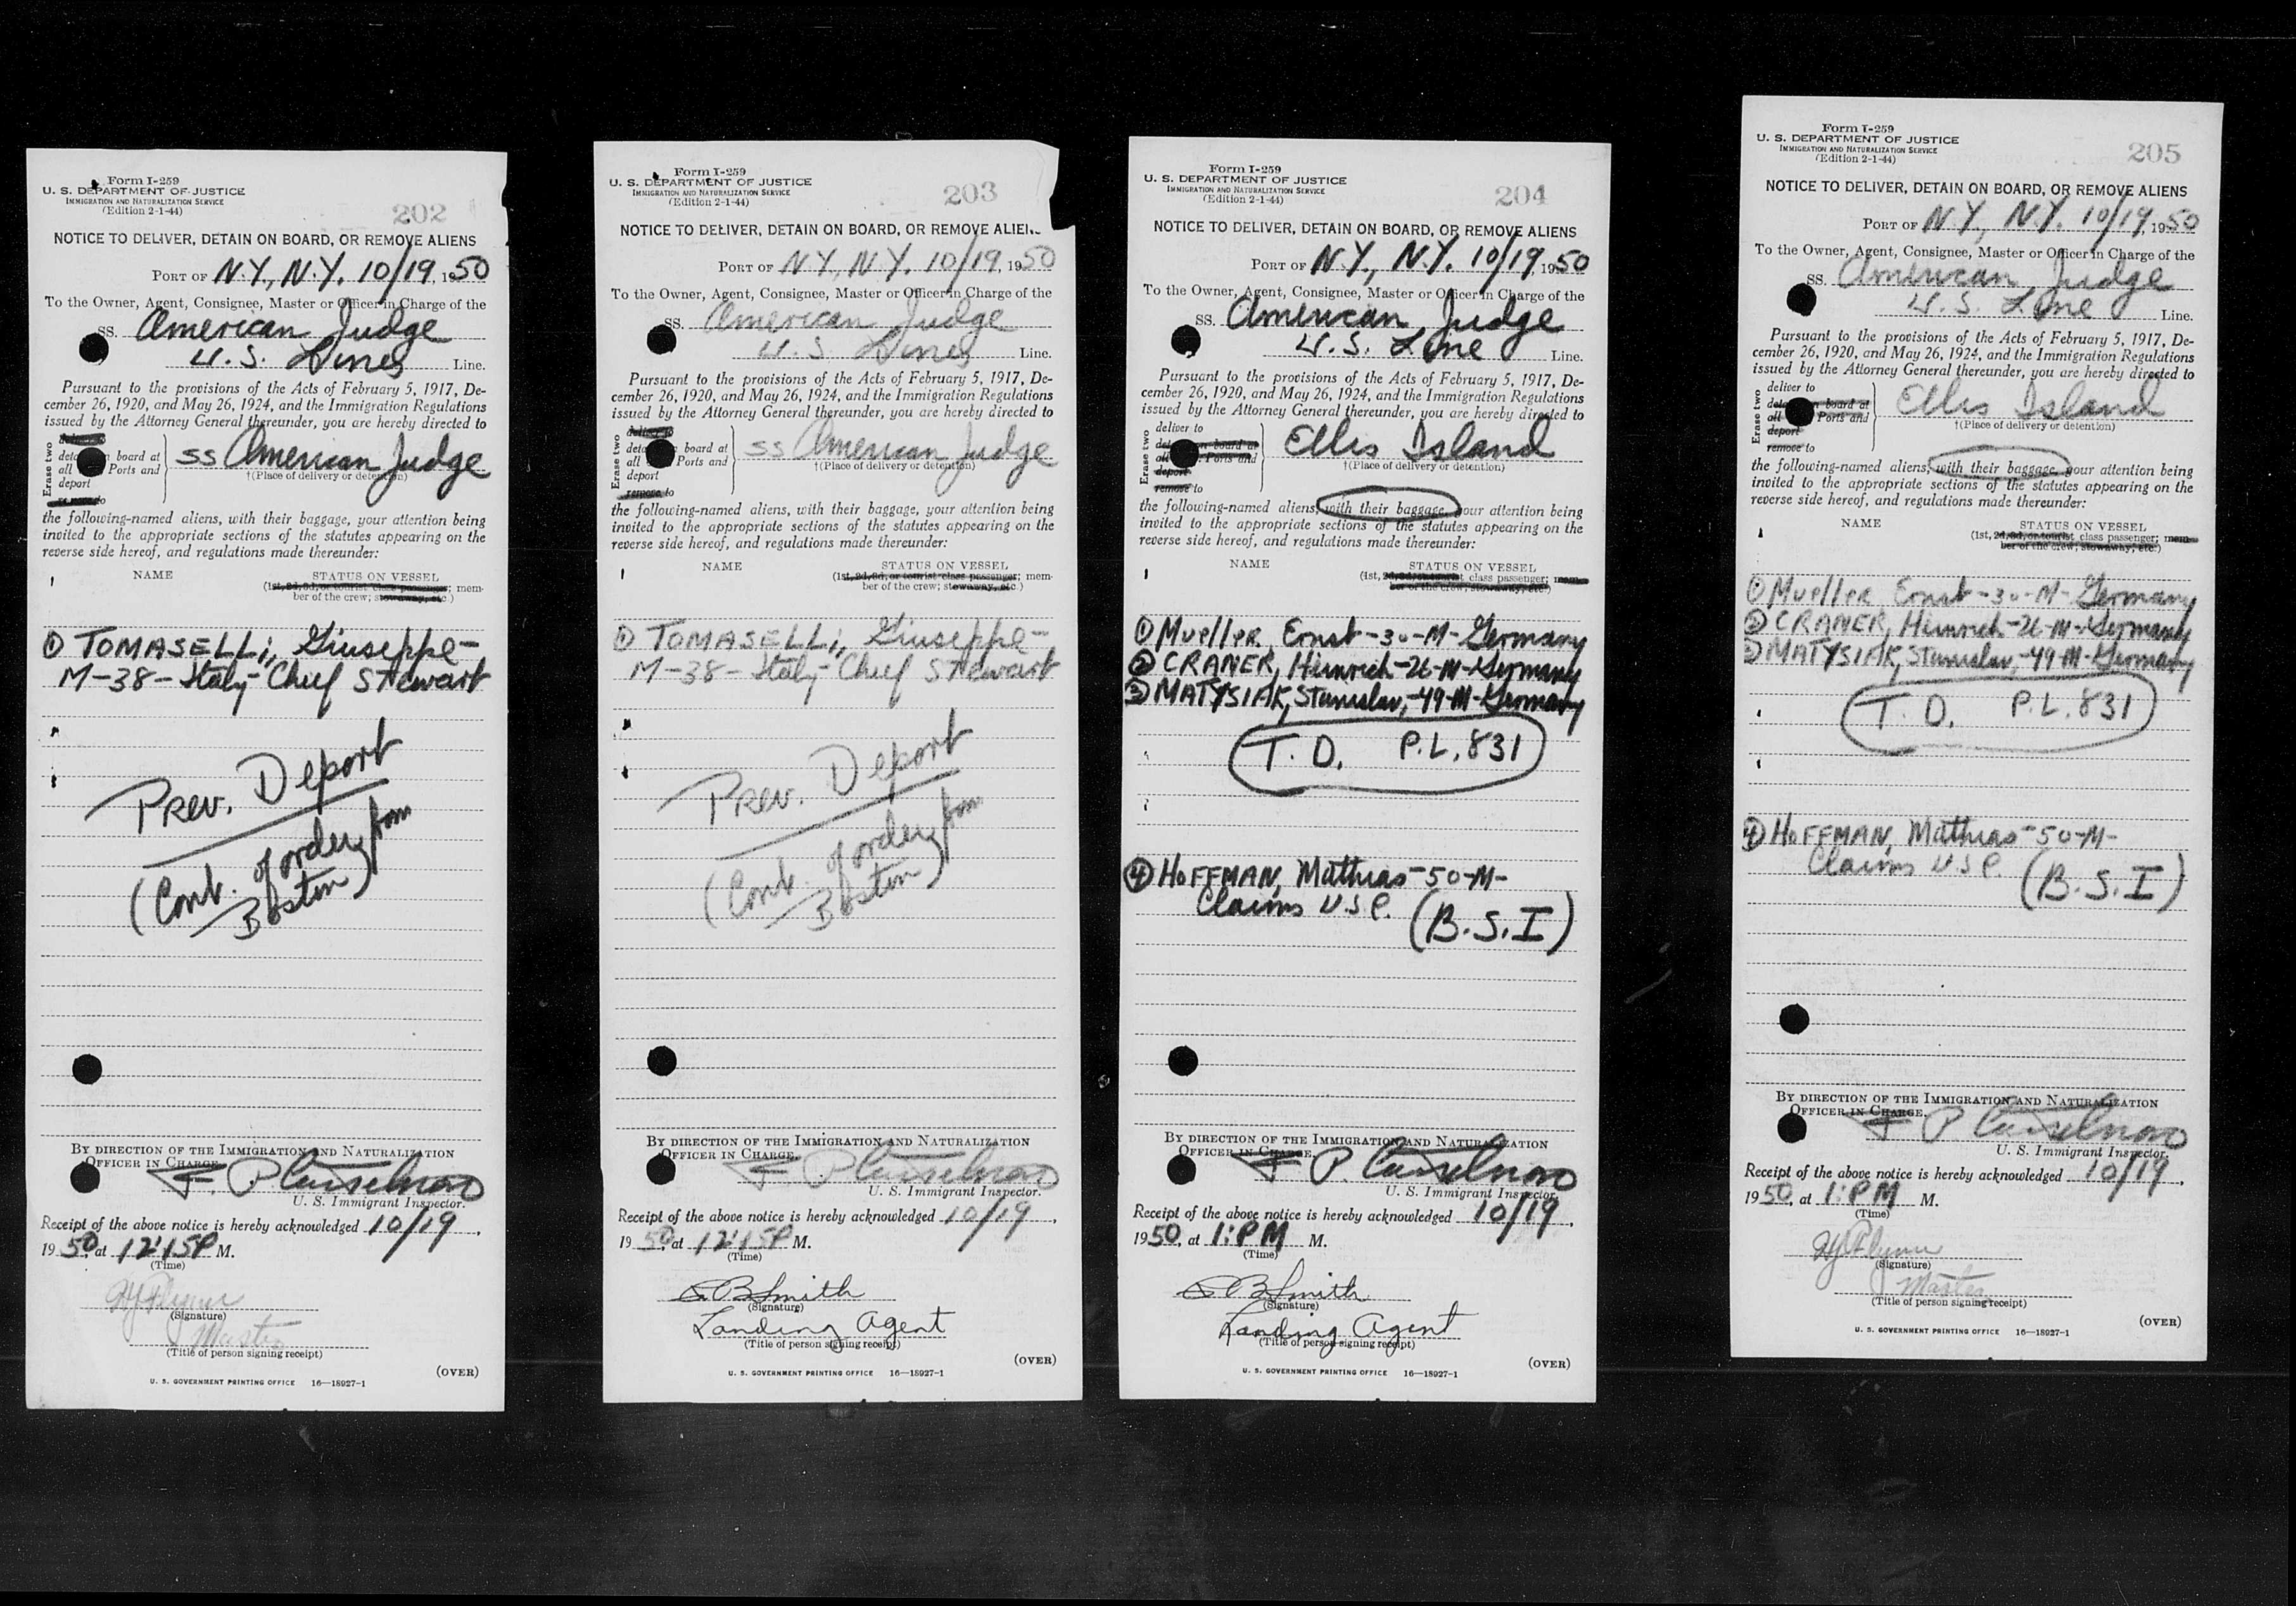 Form I-259
U. S. DEPARTMENT OF JUSTICE
IMMIGRATION AND NATURALIZATION SERVICE
(Edition 2-1-44)
202
NOTICE TO DELIVER, DETAIN ON BOARD, OR REMOVE ALIENS
PORT OF N.Y., N.Y. 10/19, 1950
To the Owner, Agent, Consignee, Master or Officer in Charge of the
SS. American Judge
U.S. Lines Line.
Pursuant to the provisions of the Acts of February 5, 1917, De-
cember 26, 1920, and May 26, 1924, and the Immigration Regulations
issued by the Attorney General thereunder, you are hereby directed to
Erase two
deliver to
board at
all Ports and
deport
remove to
SS American Judge
†(Place of delivery or detention)
the following-named aliens, with their baggage, your attention being
invited to the appropriate sections of the statutes appearing on the
reverse side hereof, and regulations made thereunder:
NAME STATUS ON VESSEL
(1st, 2d, 3d, or tourist class passenger; mem-
ber of the crew; stowaway, etc.)
① TOMASELLi, Giuseppe-
M-38-Italy-Chief Stewart
Prev. Deport
(Cont. of order from
Boston)
BY DIRECTION OF THE IMMIGRATION AND NATURALIZATION
OFFICER IN CHARGE.
U. S. Immigrant Inspector.
Receipt of the above notice is hereby acknowledged 10/19,
1950, at 12:15P M.
(Time)
(Signature)
Master
(Title of person signing receipt)
(OVER)
U. S. GOVERNMENT PRINTING OFFICE 16—18927-1
Form I-259
U. S. DEPARTMENT OF JUSTICE
IMMIGRATION AND NATURALIZATION SERVICE
(Edition 2-1-44)
203
NOTICE TO DELIVER, DETAIN ON BOARD, OR REMOVE ALIEN
PORT OF N.Y., N.Y. 10/19, 1950
To the Owner, Agent, Consignee, Master or Officer in Charge of the
SS. American Judge
U.S. Lines Line.
Pursuant to the provisions of the Acts of February 5, 1917, De-
cember 26, 1920, and May 26, 1924, and the Immigration Regulations
issued by the Attorney General thereunder, you are hereby directed to
Erase two
deliver to
board at
all Ports and
deport
remove to
SS American Judge
†(Place of delivery or detention)
the following-named aliens, with their baggage, your attention being
invited to the appropriate sections of the statutes appearing on the
reverse side hereof, and regulations made thereunder:
NAME STATUS ON VESSEL
(1st, 2d, 3d, or tourist class passenger; mem-
ber of the crew; stowaway, etc.)
① TOMASELLi, Giuseppe-
M-38-Italy-Chief Stewart
Prev. Deport
(Cont. of order from
Boston)
BY DIRECTION OF THE IMMIGRATION AND NATURALIZATION
OFFICER IN CHARGE.
U. S. Immigrant Inspector.
Receipt of the above notice is hereby acknowledged 10/19,
1950, at 12:15P M.
(Time)
B Smith
(Signature)
Landing Agent
(Title of person signing receipt)
(OVER)
U. S. GOVERNMENT PRINTING OFFICE 16—18927-1
Form I-259
U. S. DEPARTMENT OF JUSTICE
IMMIGRATION AND NATURALIZATION SERVICE
(Edition 2-1-44)
204
NOTICE TO DELIVER, DETAIN ON BOARD, OR REMOVE ALIENS
PORT OF N.Y., N.Y. 10/19 1950
To the Owner, Agent, Consignee, Master or Officer in Charge of the
SS. American Judge
U.S. Line Line.
Pursuant to the provisions of the Acts of February 5, 1917, De-
cember 26, 1920, and May 26, 1924, and the Immigration Regulations
issued by the Attorney General thereunder, you are hereby directed to
Erase two
deliver to
board at
all Ports and
deport
remove to
Ellis Island
†(Place of delivery or detention)
the following-named aliens, with their baggage, your attention being
invited to the appropriate sections of the statutes appearing on the
reverse side hereof, and regulations made thereunder:
NAME STATUS ON VESSEL
(1st, 2d, 3d, or tourist class passenger; mem-
ber of the crew; stowaway, etc.)
① Mueller Ernst-30-M-Germany
② CRAMER, Heinrich-26-M-Germany
③ MATYSIAK, Stanislav,-49-M-Germany
T.D. P.L.831
④ HOFFMAN, Mathias-50-M-
Claims U.S.C. (B.S.I)
BY DIRECTION OF THE IMMIGRATION AND NATURALIZATION
OFFICER IN CHARGE.
U. S. Immigrant Inspector.
Receipt of the above notice is hereby acknowledged 10/19,
1950, at 1:PM M.
(Time)
B Smith
(Signature)
Landing Agent
(Title of person signing receipt)
(OVER)
U. S. GOVERNMENT PRINTING OFFICE 16—18927-1
Form I-259
U. S. DEPARTMENT OF JUSTICE
IMMIGRATION AND NATURALIZATION SERVICE
(Edition 2-1-44)
205
NOTICE TO DELIVER, DETAIN ON BOARD, OR REMOVE ALIENS
PORT OF N.Y., N.Y. 10/19, 1950
To the Owner, Agent, Consignee, Master or Officer in Charge of the
SS. American Judge
U.S. Line Line.
Pursuant to the provisions of the Acts of February 5, 1917, De-
cember 26, 1920, and May 26, 1924, and the Immigration Regulations
issued by the Attorney General thereunder, you are hereby directed to
Erase two
deliver to
board at
all Ports and
deport
remove to
Ellis Island
†(Place of delivery or detention)
the following-named aliens, with their baggage, your attention being
invited to the appropriate sections of the statutes appearing on the
reverse side hereof, and regulations made thereunder:
NAME STATUS ON VESSEL
(1st, 2d, 3d, or tourist class passenger; mem-
ber of the crew; stowaway, etc.)
① Mueller Ernst-30-M-Germany
② CRAMER, Heinrich-26-M-Germany
③ MATYSIAK, Stanislav,-49-M-Germany
T.D. P.L.831
④ HOFFMAN, Mathias-50-M-
Claims U.S.C. (B.S.I)
BY DIRECTION OF THE IMMIGRATION AND NATURALIZATION
OFFICER IN CHARGE.
U. S. Immigrant Inspector.
Receipt of the above notice is hereby acknowledged 10/19,
1950, at 1:PM M.
(Time)
(Signature)
Master
(Title of person signing receipt)
(OVER)
U. S. GOVERNMENT PRINTING OFFICE 16—18927-1